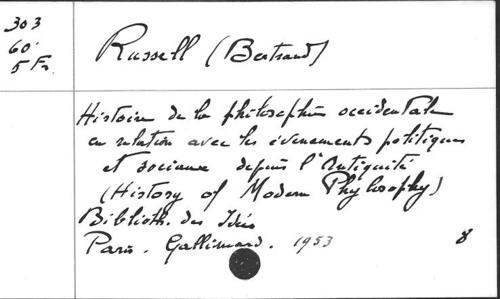 303
60.
5 Fr.
Russell (Bertrand)
Histoire de la philosophie occidentale
en relation avec les évenements politiques
et sociaux depuis l'Antiquité
(History of Modern Phylosophy)
Biblioth. des Idées
Paris. Gallimard. 1953
8